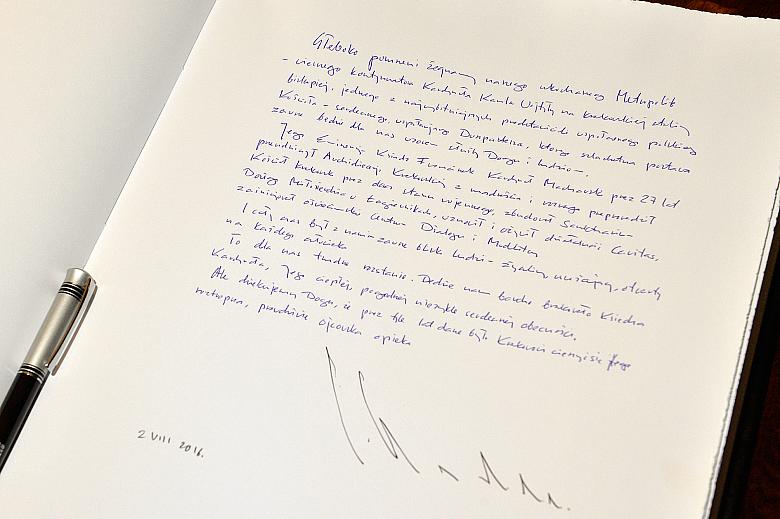 Głęboko poruszeni żegnamy naszego ukochanego Metropolitę
- wiernego kontynuatora Kardynała Karola Wojtyły na krakowskiej stolicy
biskupiej, jednego z najwybitniejszych przedstawicieli współczesnego polskiego
Kościoła - serdecznego, wspaniałego Duszpasterza, którego szlachetna postawa
zawsze będzie dla nas wzorem służby Bogu i ludziom.
Jego Eminencja Ksiądz Franciszek Kardynał Macharski przez 27 lat
prowadził Archidiecezję Krakowską z mądrością i odwagą przeprowadził
Kościół krakowski przez okres stanu wojennego, zbudował Sanktuarium
Bożego Miłosierdzia w Łagiewnikach, wznowił i ożywił działalność Caritas,
zainicjował oświęcimskie Centrum Dialogu i Modlitwy.
I cały czas był z nami zawsze blisko ludzi - życzliwy, uważający, otwarty
na każdego człowieka
To dla nas trudne rozstanie. Będzie nam bardzo brakowało Księdza
Kardynała, Jego ciepłej, pogodnej niezwykle serdecznej obecności.
Ale dziękujemy Bogu, że przez tyle lat dane było Krakowowi cieszyć się Jego
roztropną, prawdziwie ojcowską opieką
2 VIII 2016.